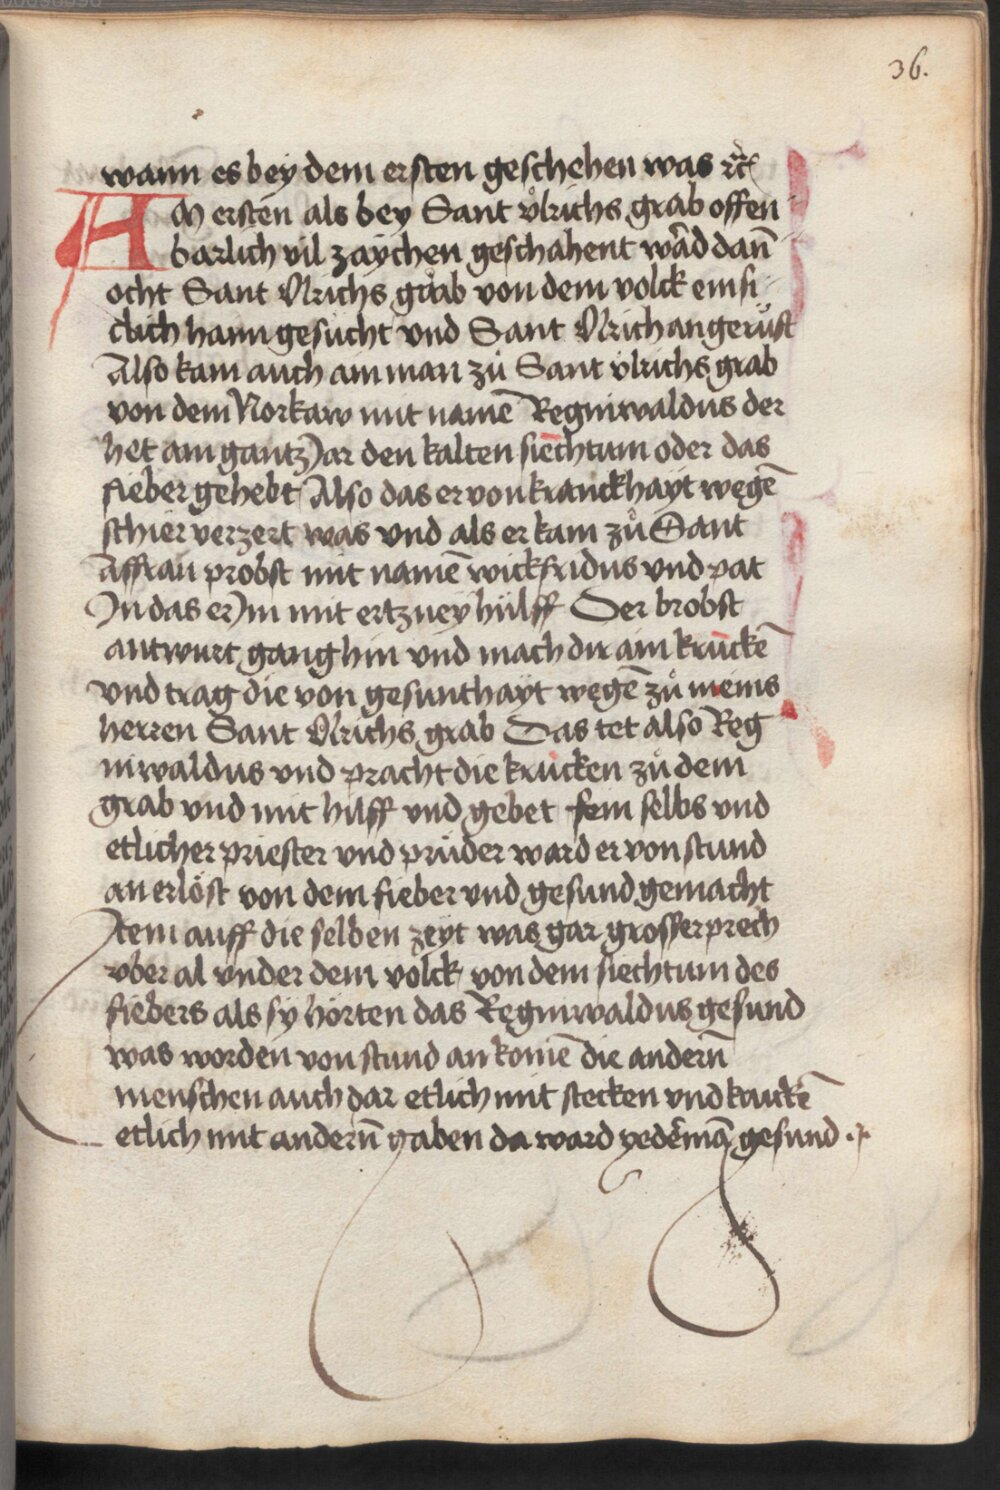 36.
wann es bey dem ersten geschehen was ꝛc̃
AM ersten als bey Sant vͦlrichs grab offen
barlich vil zaychen geschahent wãd dañ
ocht Sant Vlrichs grab von dem volck emsi
clich hann gesucht vnd Sant Vlrich angerůft
Also kam auch ain man zů Sant vlrichs grab
von dem Norkaw mit namē Reginwaldus der
het ain gantz Jar den kalten siechtum oder das
fieber gehebt Also das er von kranckhayt wegē
schier verzert was vnd als er kam zů Sant
Affran probst mit namē wickfridus vnd pat
Jn das er Jm mit ertzney hülff Der brobst
antwurt gang hin vnd mach dir ain krückē
vnd trag die von gesunthayt wegē zů meins
herren Sant Vlrichs grab Das tet also Reg
inwaldus vnd pracht die krucken zů dem
grab vnd mit hilff vnd gebet sein selbs vnd
etlicher priester vnd prüder ward er von stund
an erlöst von dem fieber vnd gesund gemacht
Jtem auff die selben zeyt was gar grosser prech
vber al vnder dem volck von dem siechtum des
fiebers als sy hörten das Reginwaldus gesund
was worden von stund an komē die anderñ
menschen auch dar etlich mit stecken vnd kruckē
etlich mit anderñ gaben da ward yedermā gesund